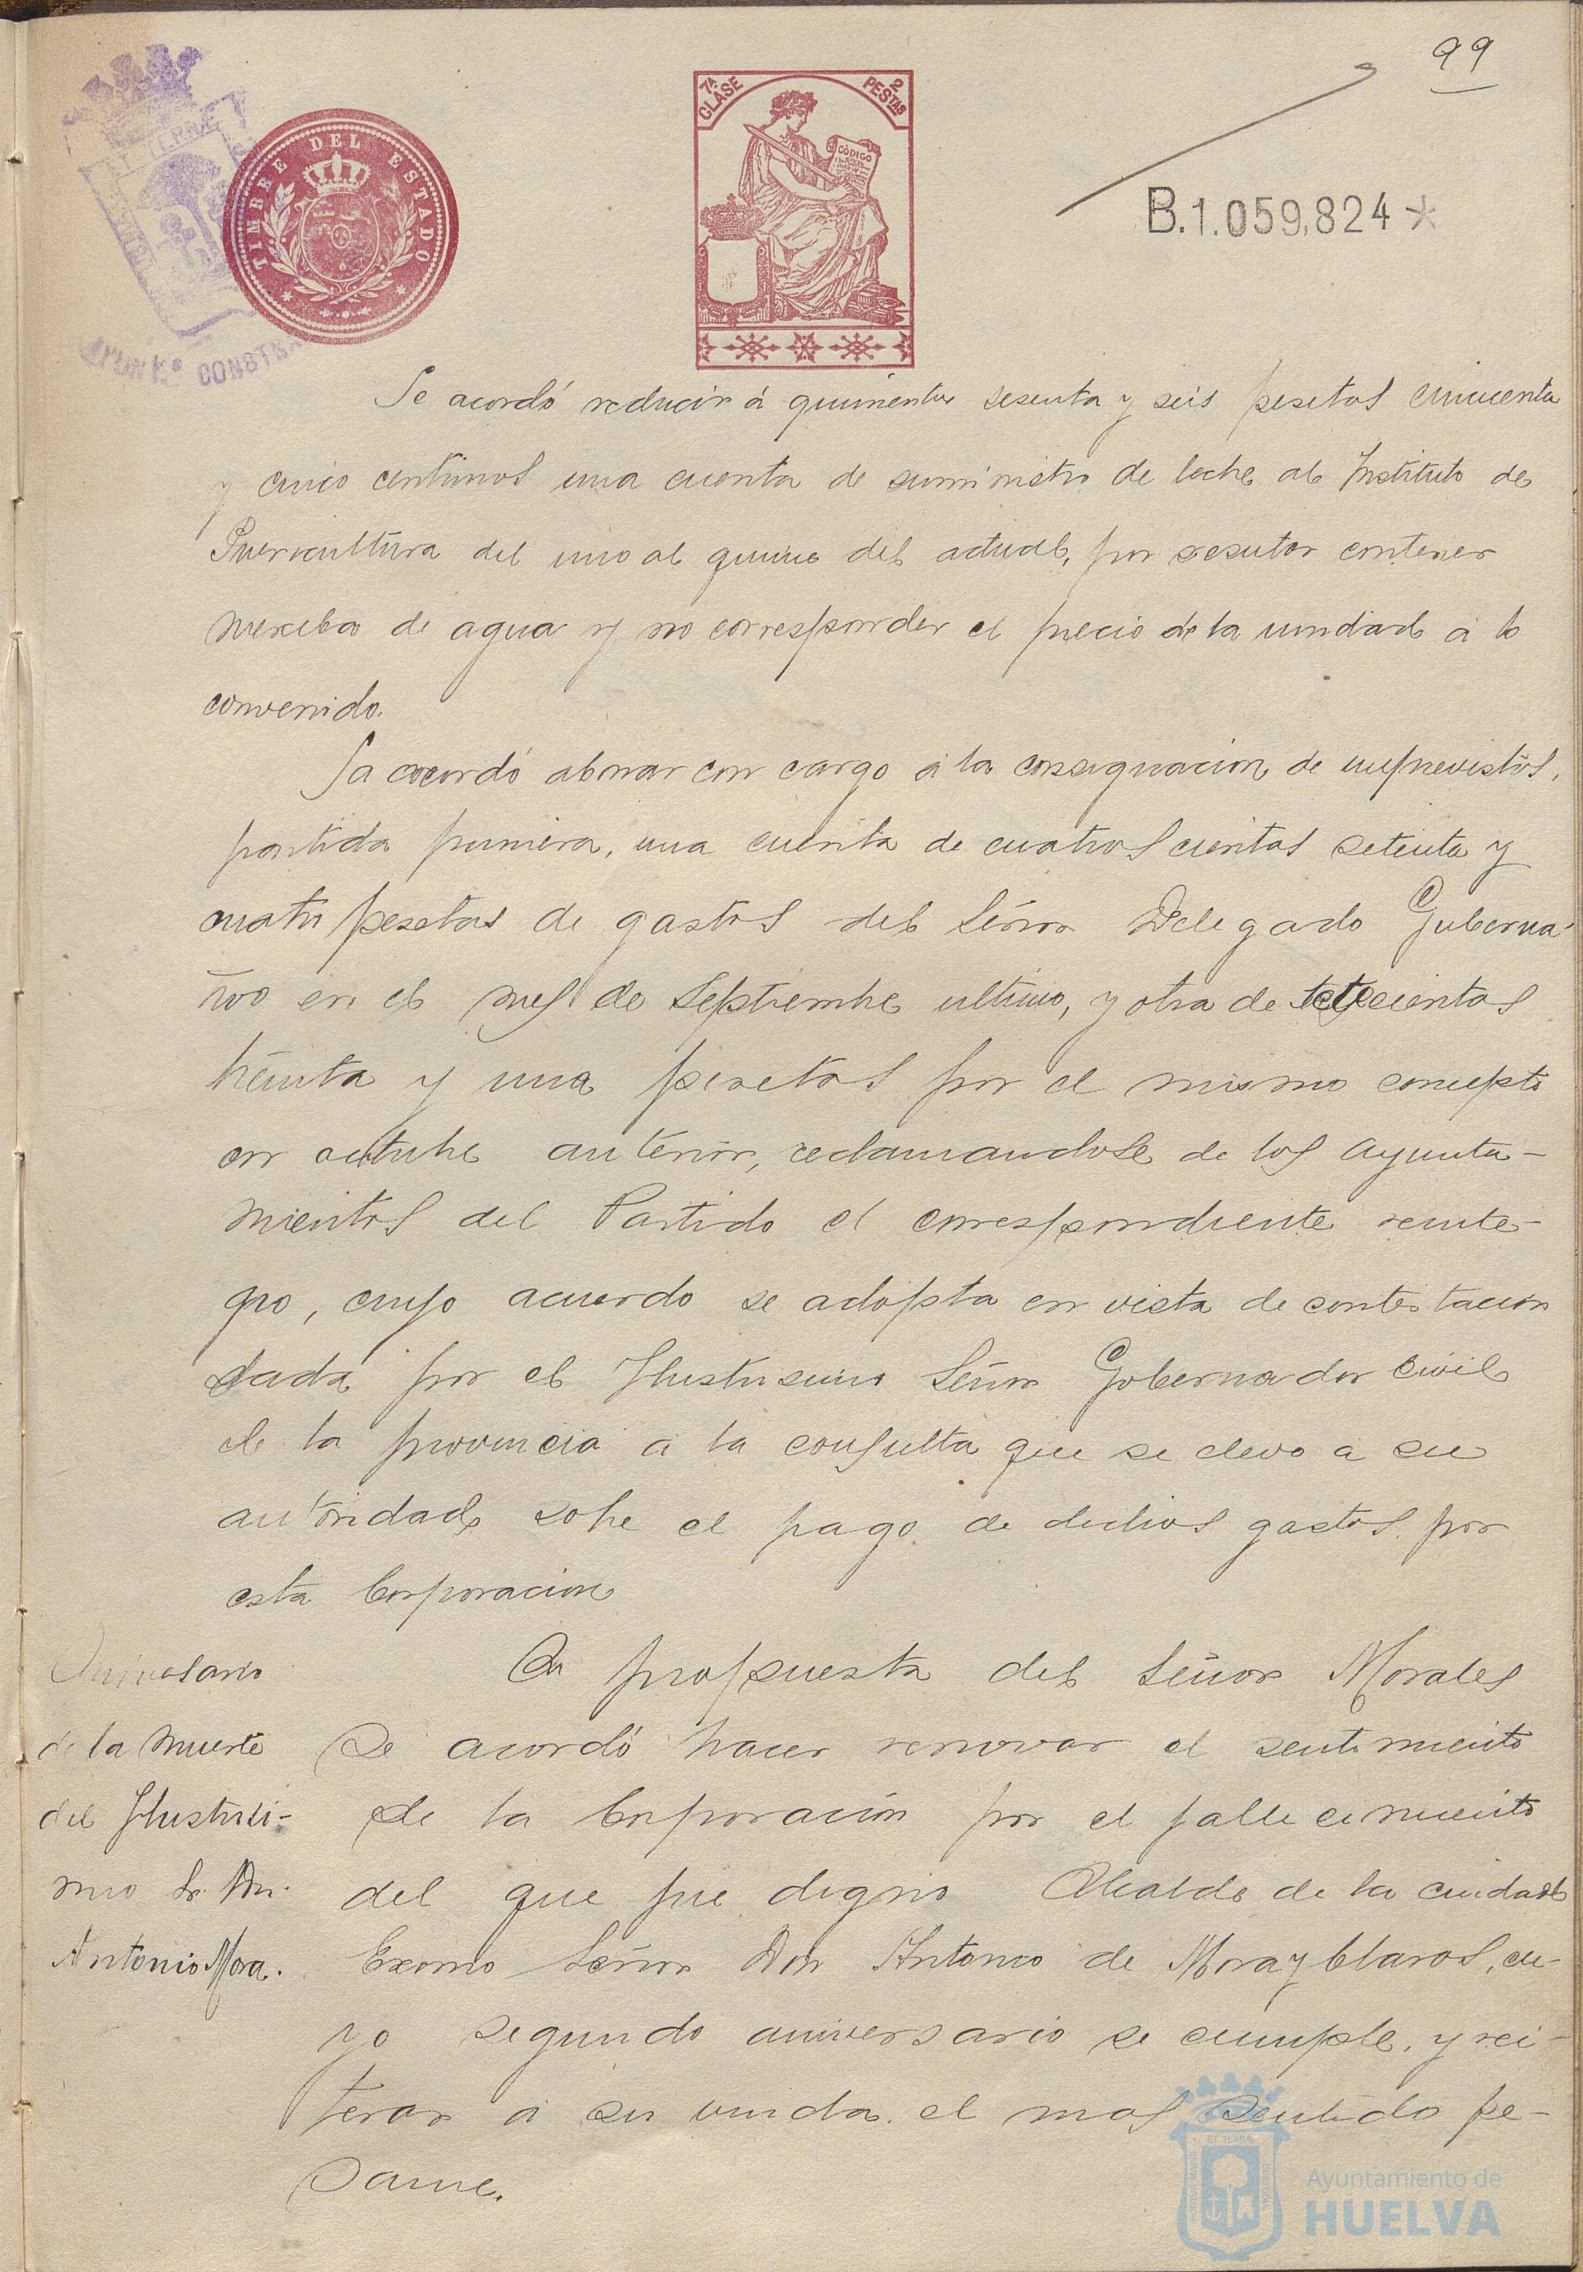 99
7ª CLASE
2 PESTAS
CÓDIGO
TIMBRE DEL ESTADO
B.1.059,824*
AYUNTº CONSTN
Se acordó reducir á quinientas sesenta y seis pesetas cincuenta
y cinco centimos una cuenta de suministro de leche al Instituto de
Puericultura del uno al quince del actual, por resultar contener
mezcla de agua y no corresponder el precio de la unidad á lo
convenido.
Se acordó abonar con cargo á la consignacion de imprevistos,
partida primera, una cuenta de cuatroscientas setenta y
cuatro pesetas de gastos del Señor Delegado Guberna-
tivo en el mes de Septiembre ultimo, y otra de setecientas
treinta y una pesetas por el mismo concepto
en octubre anterior, reclamandose de los Ayunta-
mientos del Partido el correspondiente reinte-
gro, cuyo acuerdo se adopta en vista de contestacion
dada por el Ilustrisimo Señor Gobernador civil
de la provincia a la consulta que se elevo a su
autoridad sobre el pago de dichos gastos por
esta Corporacion
Aniversario
de la muerte
del Ilustrisi-
mo Sr. Dn.
Antonio Mora.
A propuesta del Señor Morales
se acordó hacer renovar el sentimiento
de la Corporación por el fallecimiento
del que fue digno Alcalde de la ciudad
Excmo Señor Don Antonio de Mora y Claros, cu-
yo segundo aniversario se cumple, y rei-
terar á su viuda el mas sentido pe-
same.
Ayuntamiento de
HUELVA